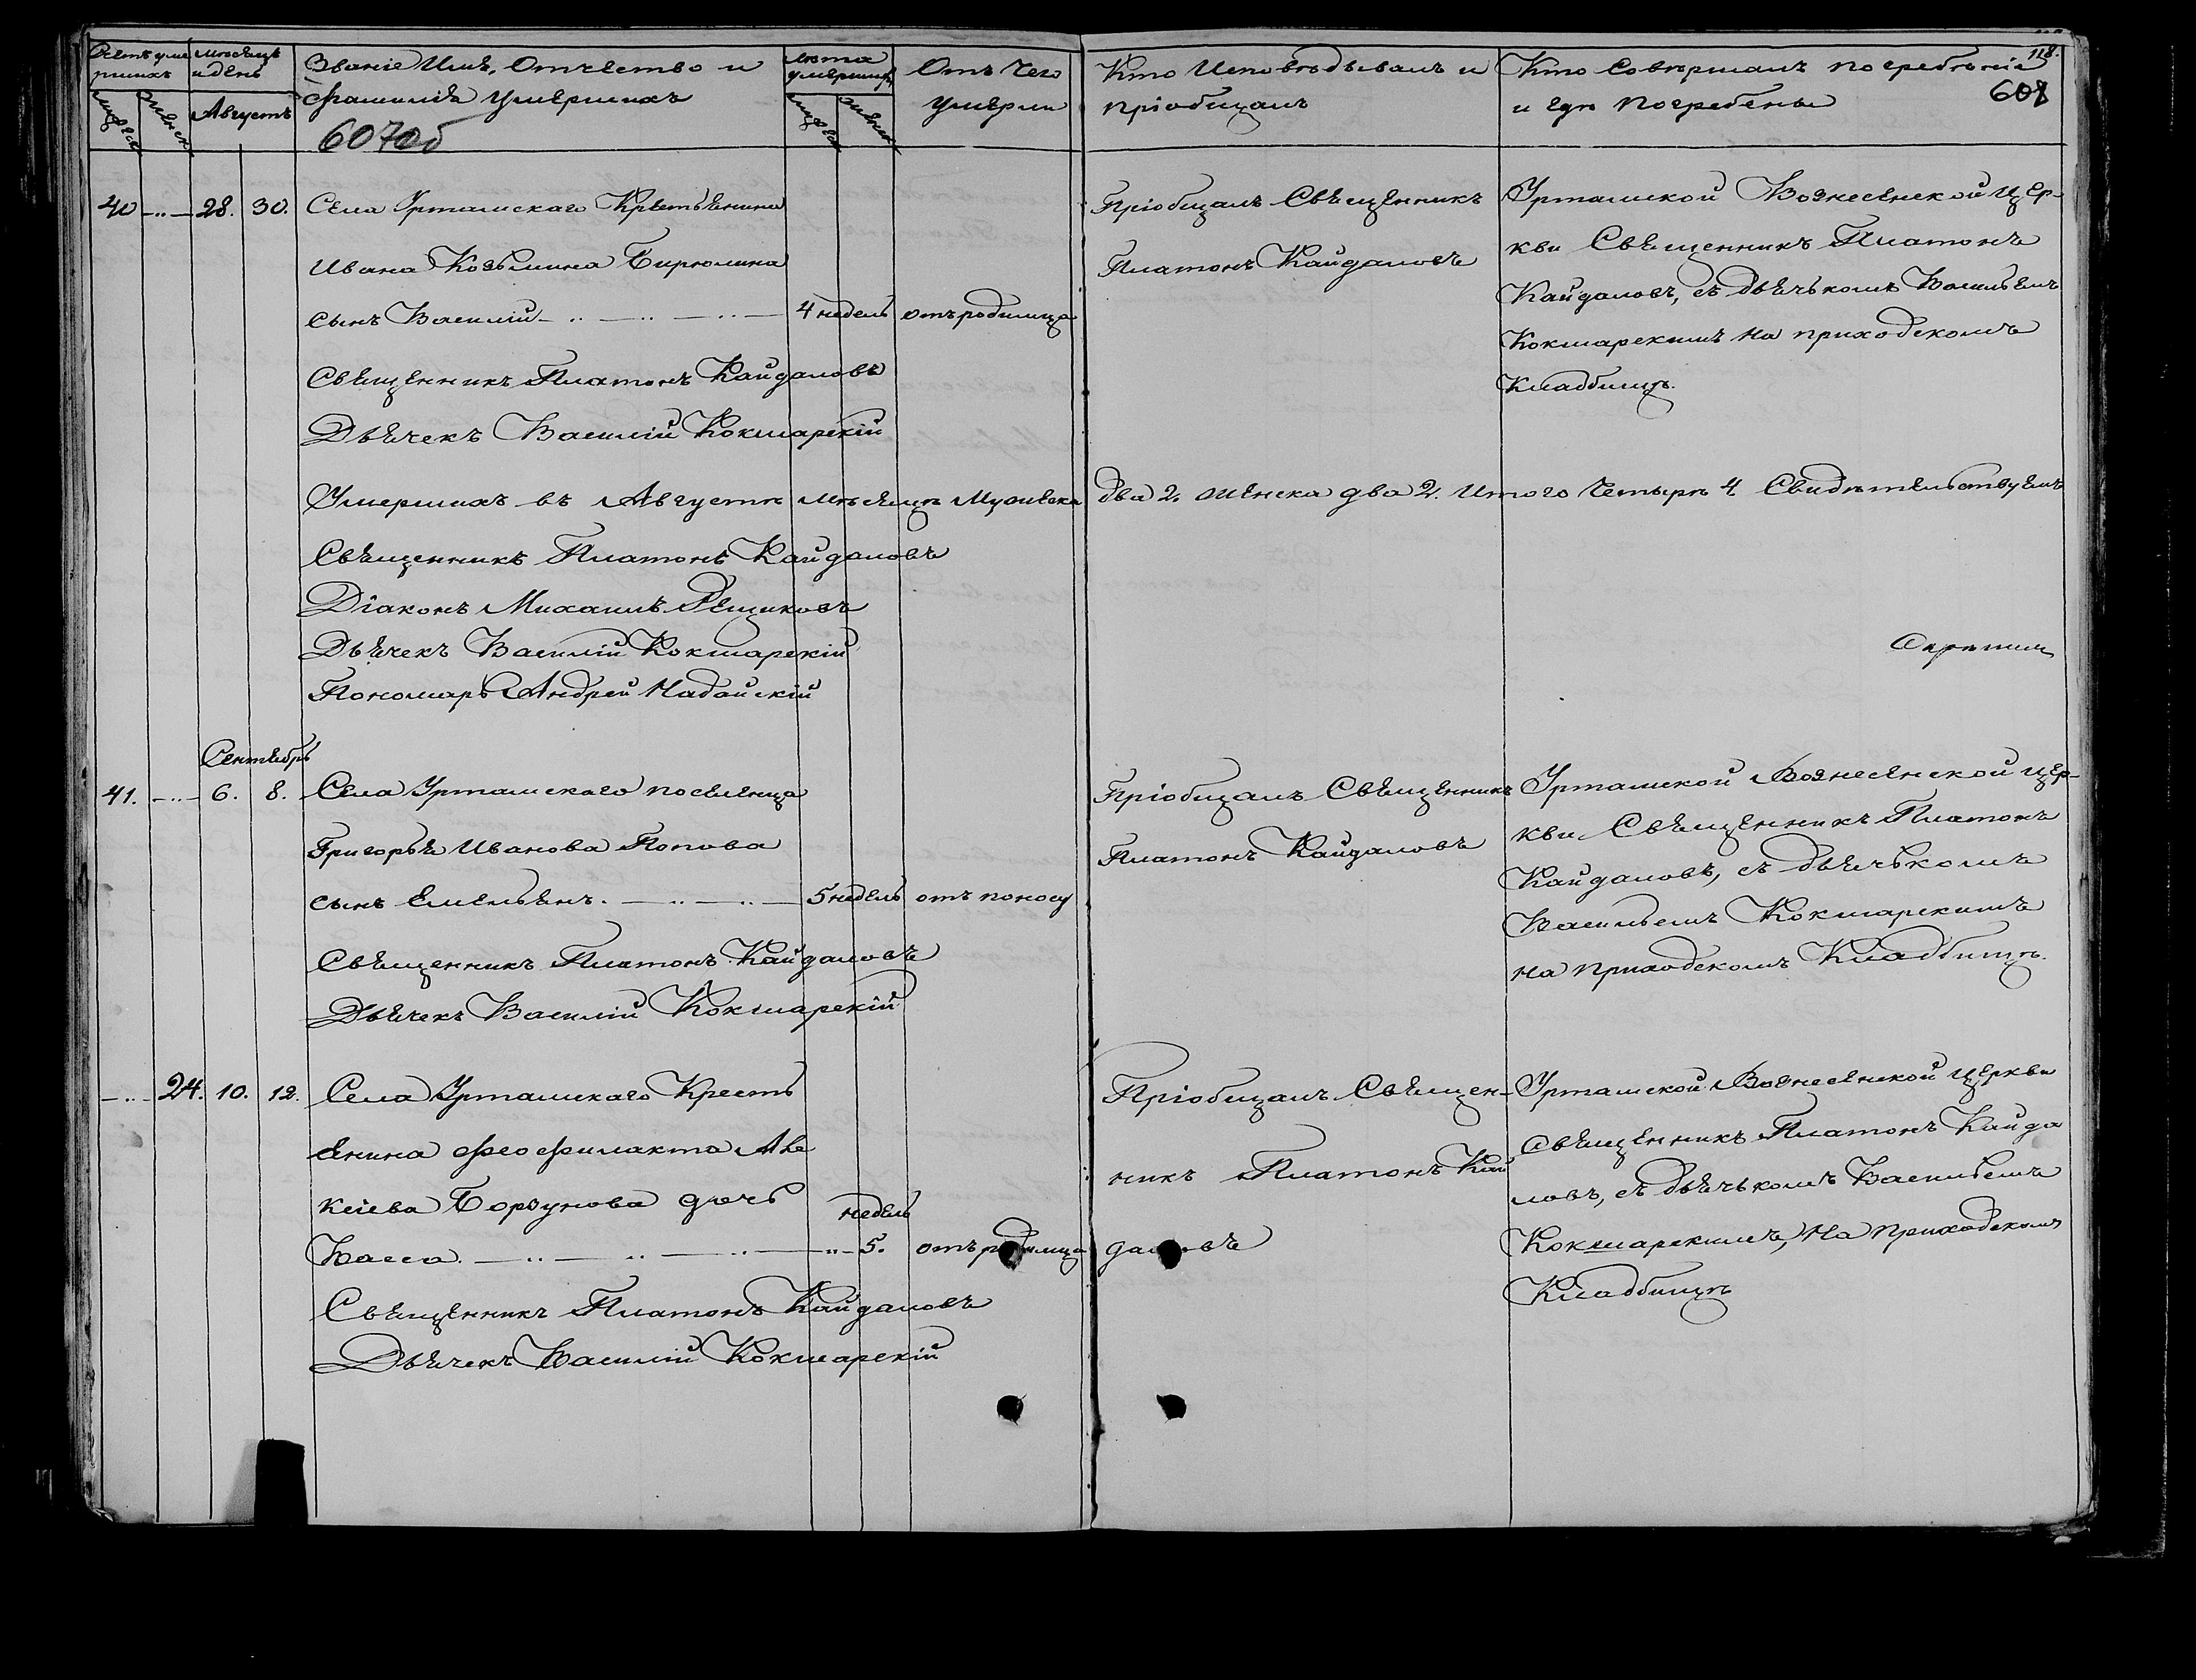 Счетъ уме Мѣсѣцъ Званіе Имѣ, Отчество и лѣта Отъ Чего Кто Исповѣдывалъ и Кто Совѣршалъ погребѣніѣ 118.
ршихъ и день Фамиліѣ умѣршихъ умершихъ умѣрли пріобщалъ и гдѣ погребѣны 608
мужеск женск Августъ мужеск женск
607об
40 28. 30. Села Уртамскаго Крѣстьѣнина
Ивана Козьмина Бирюлина
сынъ Василій 4 недель отъ родимца
Пріобщалъ Свѣщѣнникъ
Платонъ Кайдаловъ
Уртамской Вознесѣнской Цѣр-
кви Свѣщенникъ Платонъ
Кайдаловъ, съ дьѣчькомъ Васильѣмъ
Кокшарскимъ на приходскомъ
Кладбищѣ.
Свѣщѣнникъ Платонъ Кайдаловъ
Дьѣчекъ Василій Кокшарскій
Умершихъ въ Августѣ мѣсѣцѣ Мужѣска два 2. жѣнска два 2. Итого Четырѣ 4 Свидѣтѣльствуѣмъ
Свѣщенникъ Платонъ Кайдаловъ
Діаконъ Михаилъ Рѣщиковъ
Дьѣчекъ Василій Кокшарскій
Пономарь Андрей Надойскій
Сентѣбрь
41. 6. 8. Села Уртамскаго посѣлѣнца
Григорьѣ Иванова Попова
сынъ Емельѣнъ. 5 недѣль отъ поносу
Пріобщалъ Свѣщѣнникъ
Платонъ Кайдаловъ
Уртамской Вознесѣнской Цѣр-
кви Свѣщѣнникъ Платонъ
Кайдаловъ, съ дьѣчькомъ
Васильемъ Кокшарскимъ
на приходскомъ Кладбищѣ.
Свѣщенникъ Платонъ Кайдаловъ
Дьѣчекъ Василій Кокшарскій
24. 10. 12. Села Уртамскаго Кресть
ѣнина Феофилакта Але
ксіева Борзунова дочь недѣль
Васса. 5. отъ родимца
Пріобщалъ Свѣщен-
никъ Платонъ Кай
даловъ
Уртамской Вознесѣнской Цѣркви
свѣщѣнникъ Платонъ Кайда
ловъ, съ дьѣчькомъ Васильемъ
Кокшарскимъ, на Приходскомъ
Кладбищѣ
Свѣщѣнникъ Платонъ Кайдаловъ
Дьѣчекъ Василій Кокшарскій